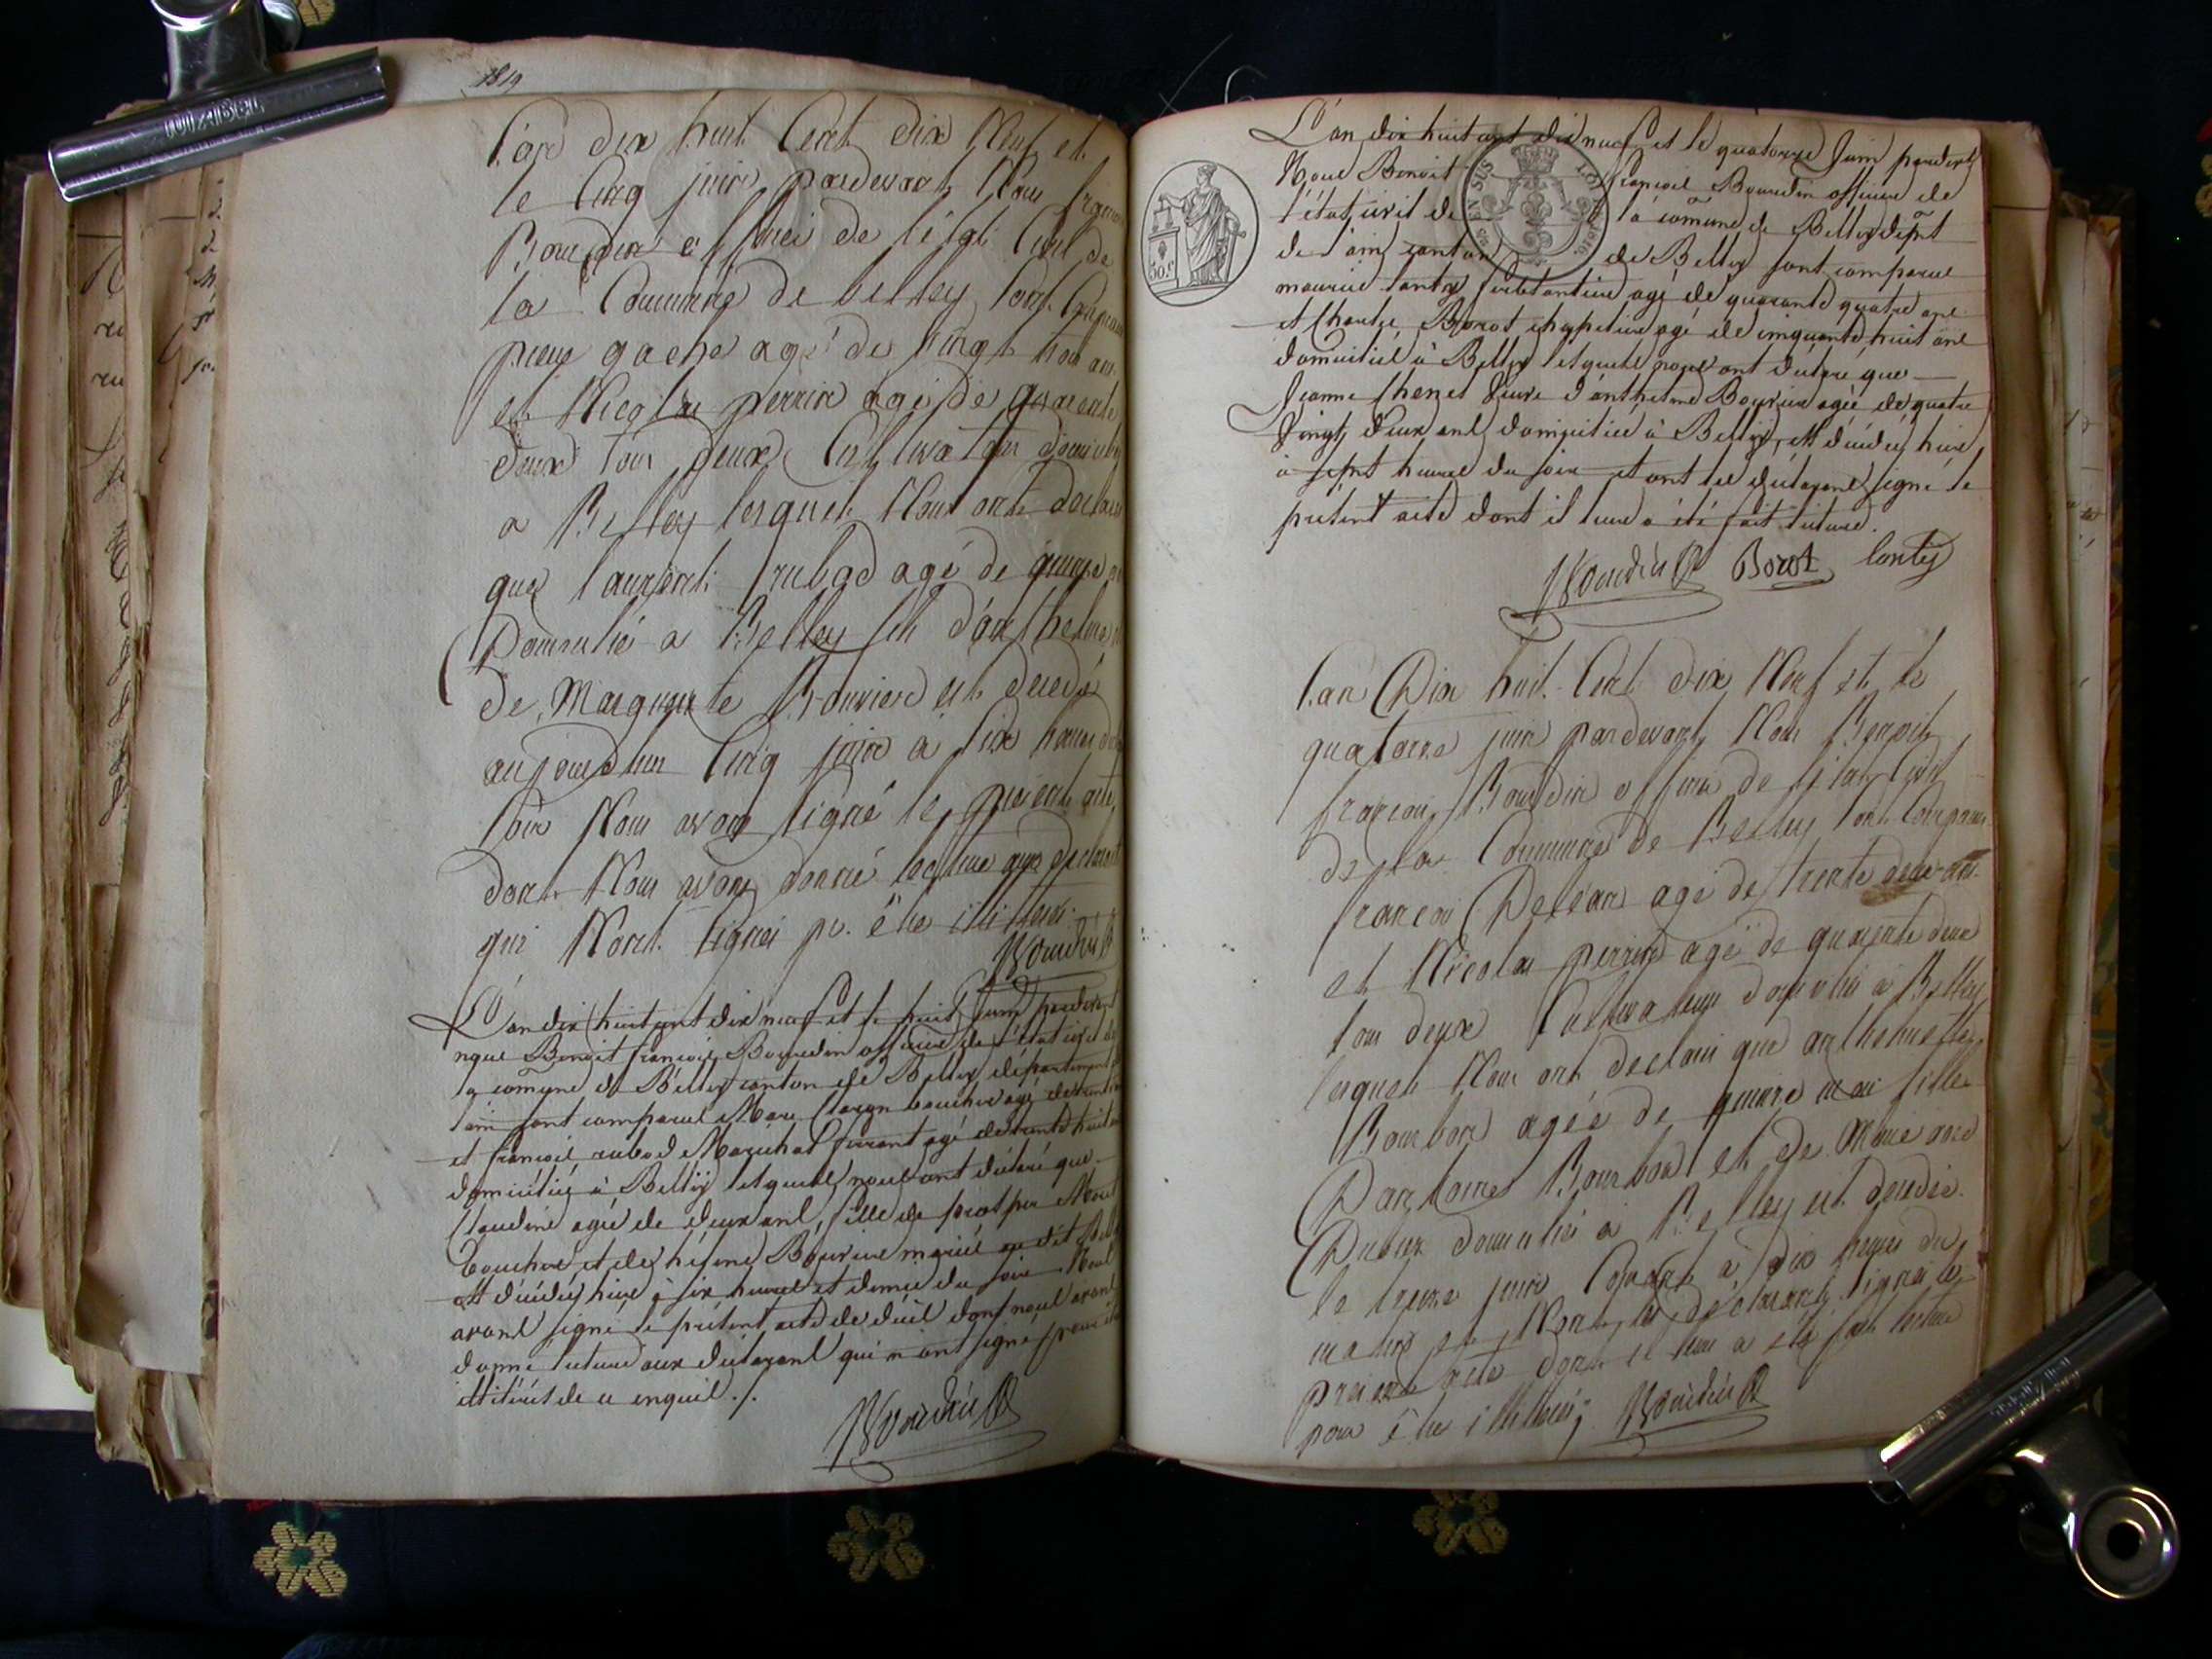 1819
l'an dix huit Cent dix Neuf et
le Cinq juin pardevant Nous
Bourdin officier de l'état Civil de
la Commune de belley sont Comparus
pierre gache agé de vingt trois ans
et Nicolas perrin agé de quarante
deux tous deux Cultivateurs domiciliés
a Belley lesquels Nous ont déclaré
que laurent rubod agé de quinze
Domicilié a Belley fils d'anthelme
de Marguerite Bouvier est décédé
aujourdhui Cinq juin a six heures du
soir Nous avons signé le present acte
dont Nous avons donné lecture aux declarants
qui N'ont signés pr. être illitérés.
Bourdin
L'an dix huit cent dix neuf et le huit Juin pardevant
nous Benoit françois Bourdin officier de l'état civil de
la comune de Belley canton de Belley département
l'ain sont comparus Marc boucher agé de trente
et françois rubod Maréchal ferrant agé de trente huit ans
domiciliés à Belley lesquels nous ont déclaré que
Claudine agée de deux ans, fille de prosper
boucher et de Bouvier mariés au dit Belley
est décédée hier à six heures et demie du soir Nous
avons signé le présent acte de décès dont nous avons
donné lecture aux déclarans qui n'ont signé pour être
illitérés de ce enquis ./.
Bourdin
L'an dix huit cent dix neuf et le quatorze Juin pardevt
Nous Benoit françois Bourdin officier de
l'état civil de la comune de Belley dépmt
de l'ain canton de Belley sont comparus
maurice contey ferblantier agé de quarante quatre ans
et Charles Borot chapelier agé de cinquante huit ans
domiciliés à Belley lesquels nous ont déclaré que
Jeanne Chenet Veuve d'anthelme Bouvier agée de quatre
Vingt deux ans domiciliée à Belley, est décédée hier
à sept heures du soir et ont les déclarans signé le
présent acte dont il leur a été fait lecture.
Bourdin Borot Contey
EN SUS
50.c
l'an Dix huit Cent dix Neuf et le
quatorze juin pardevant Nous Benoit
françois Bourdin officier de l'état Civil
de la Commune de Belley sont Comparus
francois agé de trente deux ans
et Nicolas perrin agé de quarante deux
tous deux Cultivateurs domiciliés a Belley
lesquels Nous ont declaré que anthelmette
Bourbon agée de quinze mois fille
D'antoine Bourbon et de Marie
Dubeux domiciliés à Belley est décédée
le treize juin Courant à dix heures du
matin et N'ont les déclarants signé le
présent acte dont il leur a été fait lecture
pour être illitérés. Bourdin